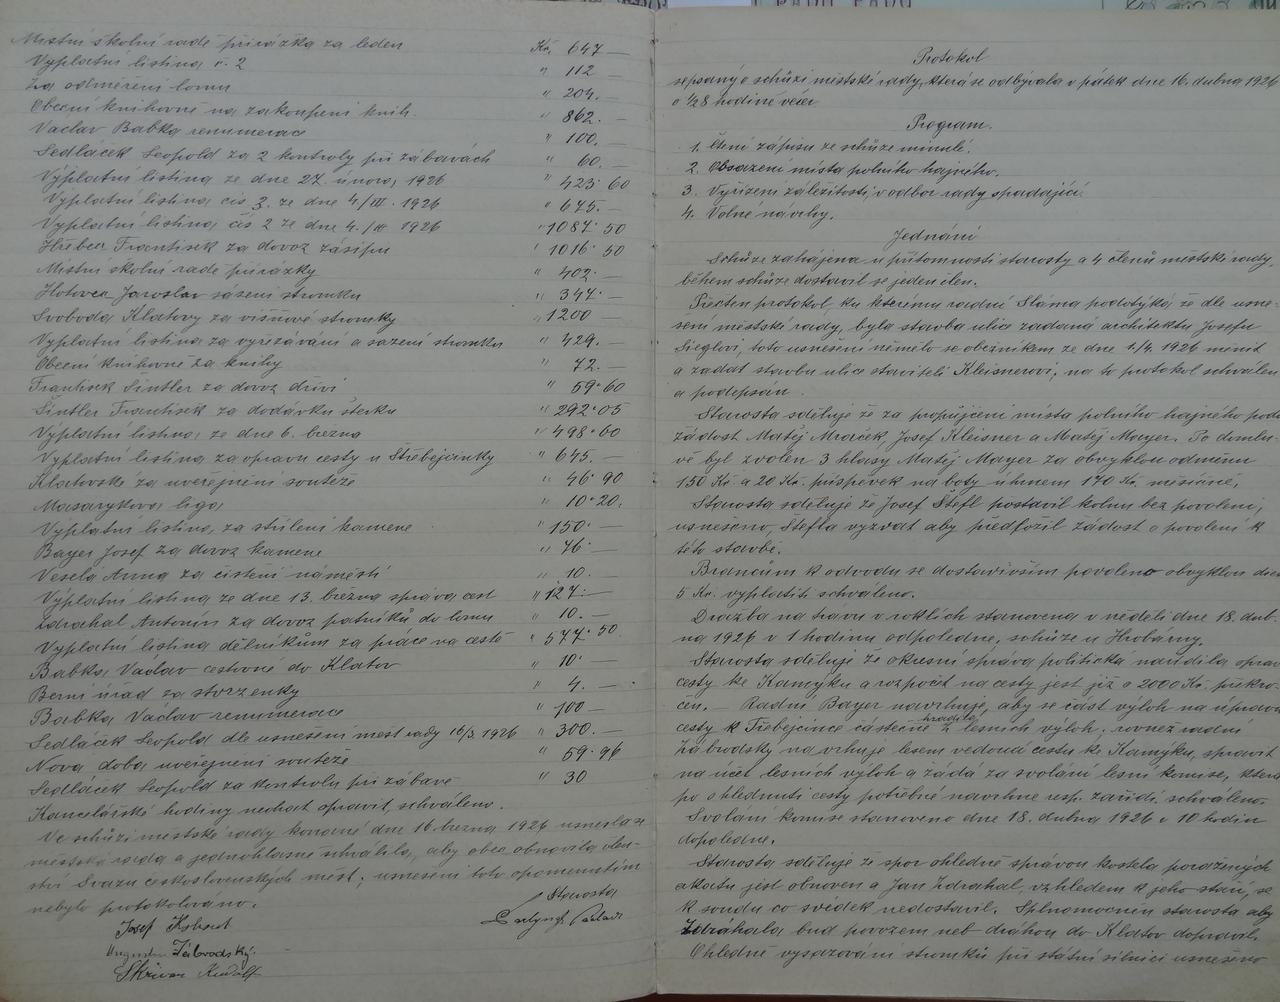 Místní školní radě přirážka za leden Kč. 647 —
Výplatní listina č. 2 " 112 —
Za odměření lomu " 204. —
Obecní knihovně na zakoupení knih. " 862. —
Václav Babka renumerace " 100. —
Sedláček Leopold za 2 kontroly při zábavách " 60. —
Výplatní listina ze dne 27. února 1926 " 423 60
Výplatní listina čís 3. ze dne 4/III. 1926 " 645. —
Výplatní listina čís 2 ze dne 4./III 1926 " 1087 50
František za dovoz zásipu " 1016 50
Místní školní radě přirážky " 402. —
Hotovec Jaroslav sázení stromků " 347. —
Svoboda Klatovy za višňové stromky " 1200 —
Výplatní listina za vyřezávání a sazení stromků " 429. —
Obecní knihovně za knihy " 72. —
František Šintler za dovoz dříví " 59.60
Šintler František za dodávku štěrku " 292.05
Výplatní listina ze dne 6. března " 498.60
Výplatní listina za opravu cesty u Střebejčinky " 645. —
Klatovsko za uveřejnění soutěže " 46.90
Masarykova liga " 10.20.
Výplatní listina, za střílení kamene " 150. —
Bayer Josef za dovoz kamene " 76. —
Veselá Anna za čistění náměstí " 10. —
Výplatní listina ze dne 13. března správa cest " 127. —
Zdrahal Antonín za dovoz patníků do lomu " 10. —
Výplatní listina dělníkům za práce na cestě " 577.50
Babka Václav cestovné do Klatov " 10. —
Berní úřad za stvrzenky " 4. —
Babka Václav renumerace " 100 —
Sedláček Leopold dle usnesení měst rady 16/3. 1926 " 300. —
Nová doba uveřejnění soutěže " 59.96
Sedláček Leopold za kontrolu při zábavě " 30
Kancelářské hodiny nechat opravit, schváleno.
Ve schůzi městské rady konané dne 16. března 1926 usnesla se
městská rada a jednohlasně schválila, aby obec obnovila člen-
ství Svazu československých měst; usnesení toto opomenutím
nebylo protokolováno.
Starosta
Josef
Augustin Zábrodský.
Skřivan Rudolf
Protokol
sepsaný o schůzi městské rady, která se odbývala v pátek dne 16. dubna 1926
o ½8 hodině večer
Program.
1. Čtení zápisu ze schůze minulé.
2. Obsazení místa polního hajného.
3. Vyřízení záležitostí, v odbor rady spadající.
4. Volné návrhy.
Jednání
Schůze zahájena u přítomnosti starosty a 4 členů městské rady,
během schůze dostavil se jeden člen.
Přečten protokol, ku kterému radní Sláma podotýká, že dle usne-
sení městské rady, byla stavba ulice zadaná architektu Josefu
Sieglovi, toto usnesení nemělo se oběžníkem ze dne 1/4. 1926 měnit
a zadat stavbu ulice staviteli Kleisnerovi, na to protokol schválen
a podepsán.
Starosta sděluje že za propůjčení místa polního hajného poda
žádost Matěj Mraček, Josef Kleisner a Matěj Mayer. Po domlu-
vě byl zvolen 3 hlasy Matěj Mayer za obvyklou odměnu
150 Kč a 20 Kč. příspěvek na boty úhrnem 170 Kč. měsíčně,
Starosta sděluje že Josef Štefl postavil kolnu bez povolení,
usneseno, Štefla vyzvat aby předložil žádost o povolení k
této stavbě.
Brancům k odvodu se dostavivším povoleno obvyklou
5 Kč. vyplatiti schváleno.
Dražba na trávu v roklích stanovena v neděli dne 18. dub-
na 1926 v 1 hodinu odpoledne, schůze u Hrobárny.
Starosta sděluje že okresní správa politická nařídila oprav
cesty ke Kamýku a rozpočet na cesty jest již o 2000 Kč. překro-
čen. — Radní Bayer navrhuje, aby se část výloh na úpravu
cesty k Třebejčince částečně hradila z lesních výloh, rovněž radní
Zábrodský navrhuje lesem vedoucí cestu ke Kamýku, spravit
na účet lesních výloh a žádá za svolání lesní komise, která
po shlednutí cesty potřebné navrhne resp. zařídí, schváleno.
Svolání komise stanoveno dne 18. dubna 1926 v 10 hodin
dopoledne.
Starosta sděluje že spor ohledně správou kostela poražených
akátů jest obnoven a Jan Zdrahal, vzhledem k jeho stáří, se
k soudu co svědek nedostavil. Splnomocněn starosta aby
Zdráhala bud povozem neb dráhou do Klatov dopravil.
Ohledně vysazování stromků při státní silnici usneseno